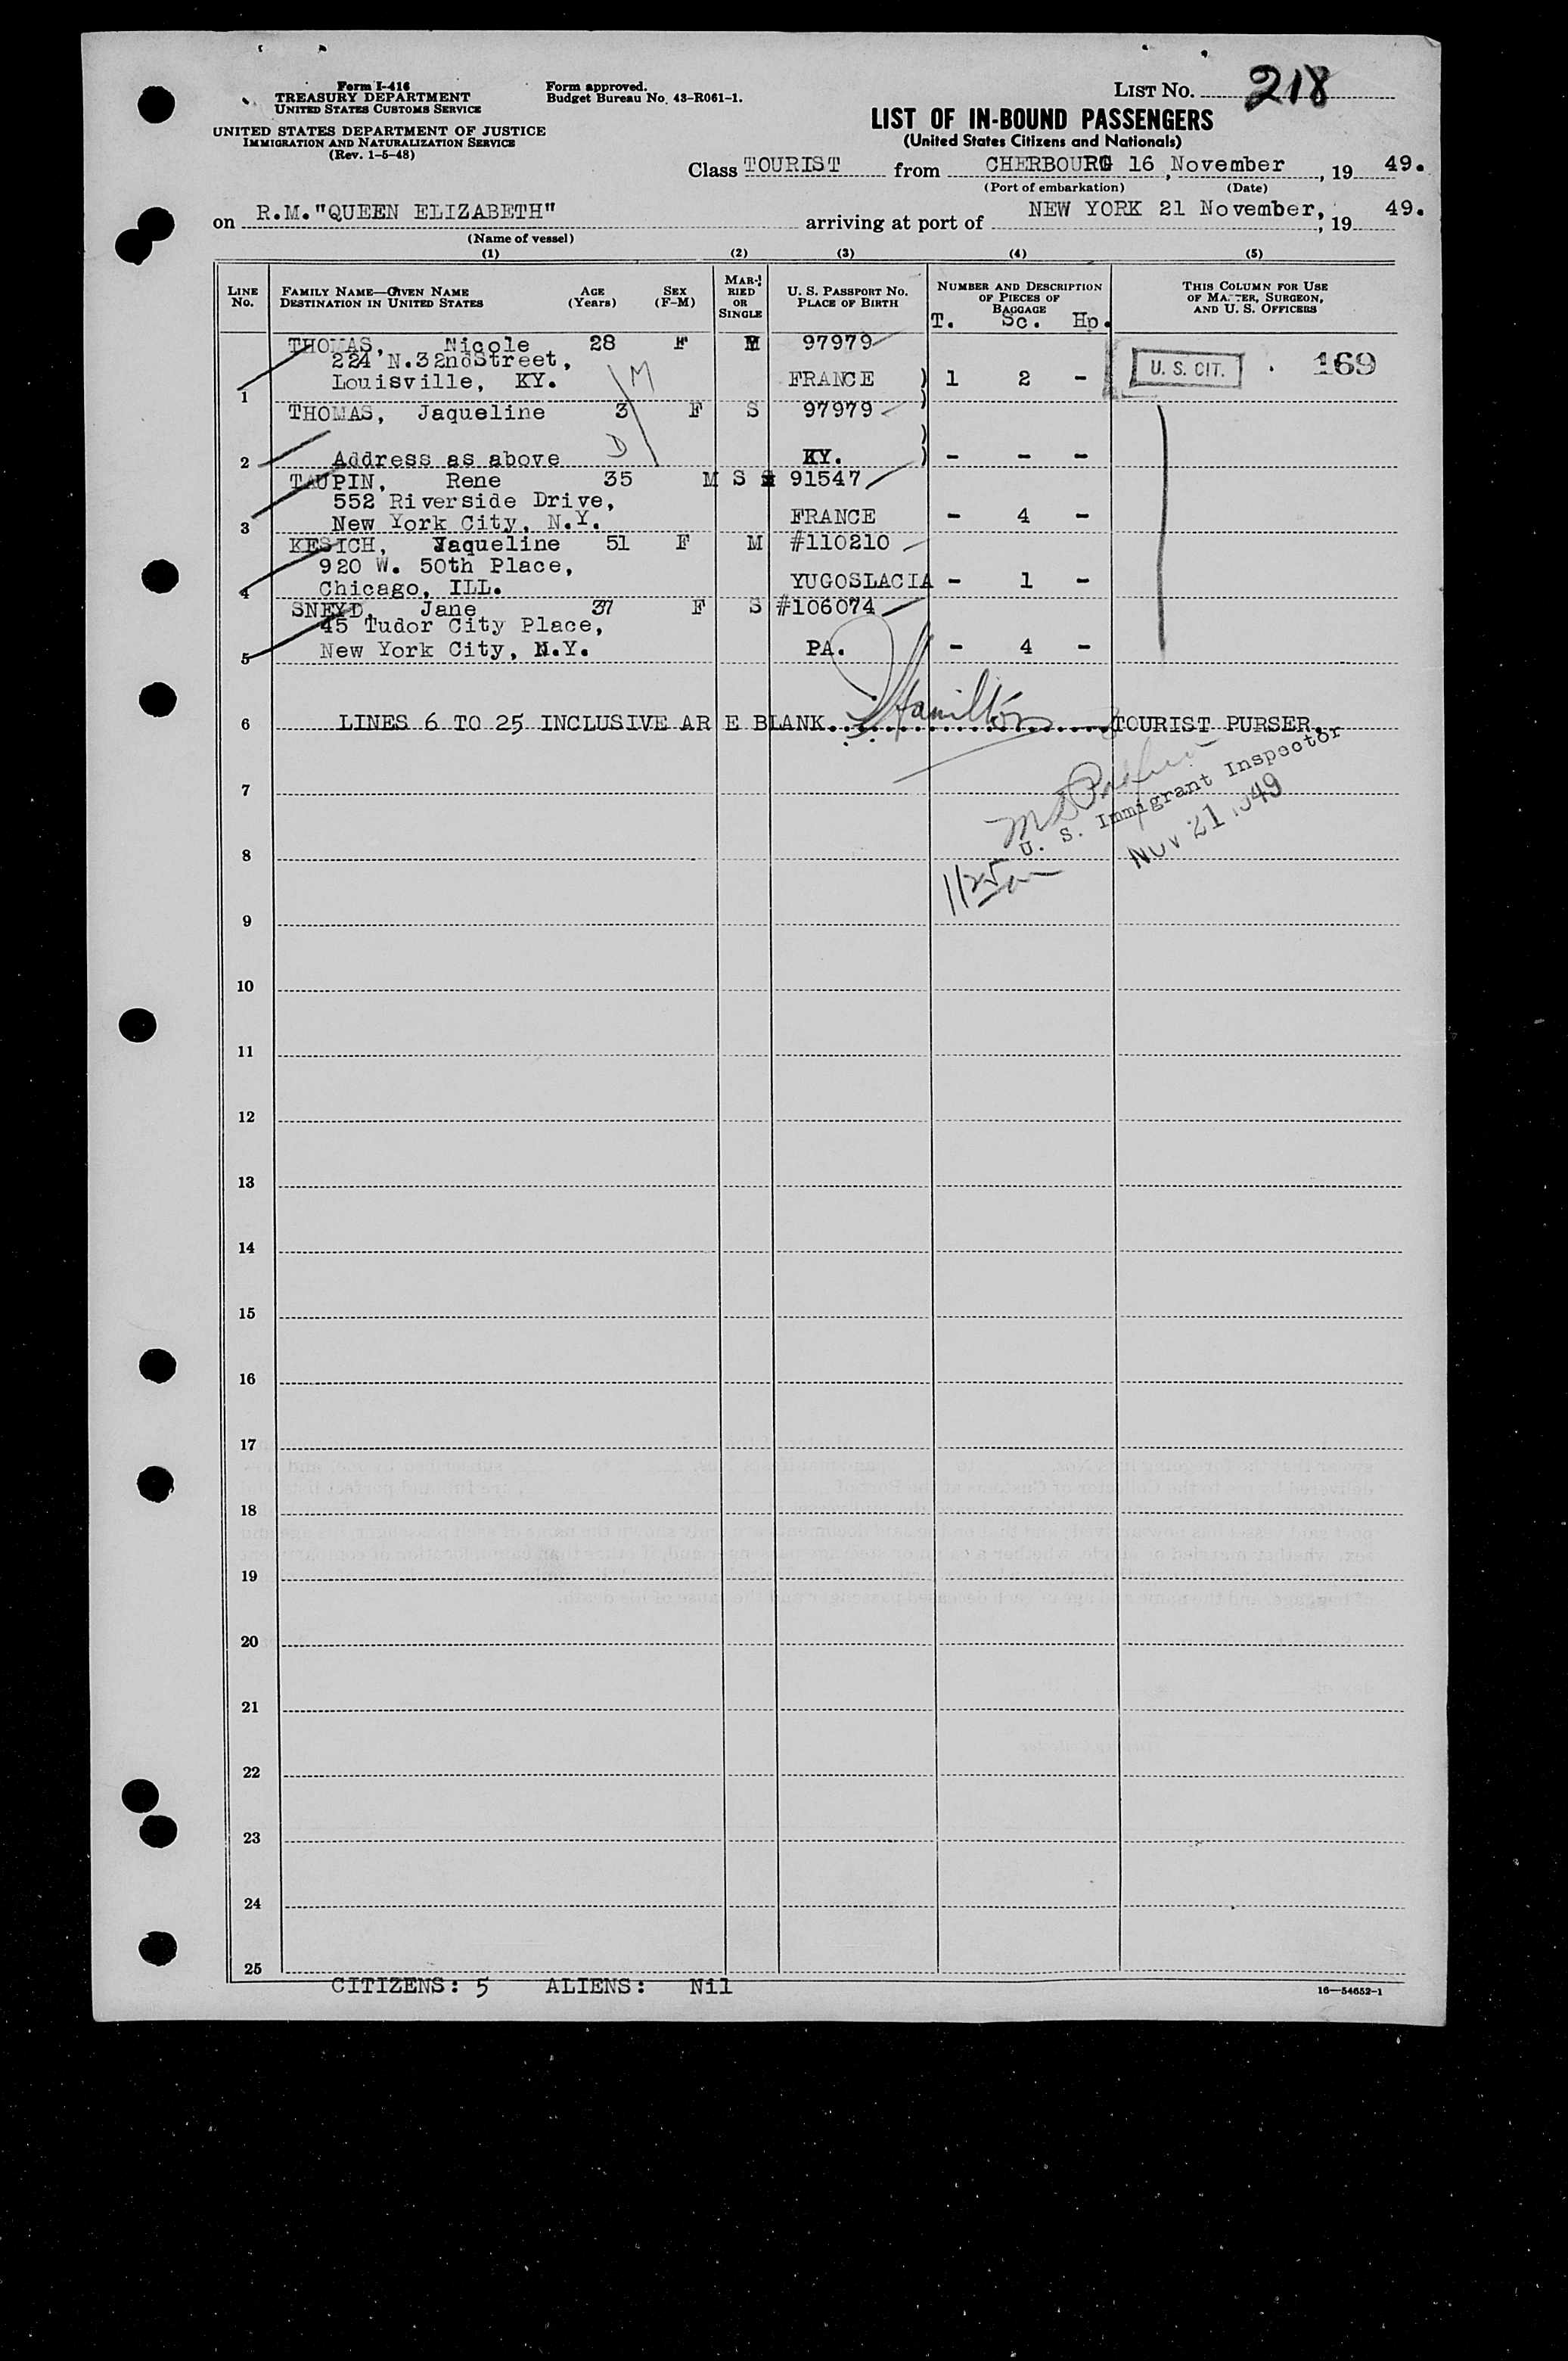 Form I-416
TREASURY DEPARTMENT
UNITED STATES CUSTOMS SERVICE
UNITED STATES DEPARTMENT OF JUSTICE
IMMIGRATION AND NATURALIZATION SERVICE
(Rev. 1-5-48)
Form approved.
Budget Bureau No. 43-R061-1.
LIST No. 218
LIST OF IN-BOUND PASSENGERS
(United States Citizens and Nationals)
Class TOURIST from CHERBOURG 16 , November , 19 49.
(Port of embarkation) (Date)
on R.M."QUEEN ELIZABETH" arriving at port of NEW YORK 21 November, , 19 49.
(Name of vessel)
(1) (2) (3) (4) (5)
LINE No. FAMILY NAME—GIVEN NAME DESTINATION IN UNITED STATES AGE (Years) SEX (F-M) MARRIED OR SINGLE U. S. PASSPORT NO. PLACE OF BIRTH NUMBER AND DESCRIPTION OF PIECES OF BAGGAGE THIS COLUMN FOR USE OF MASTER, SURGEON, AND U. S. OFFICERS
T. Sc. Hp.
THOMAS, Nicole 28 F M 97979
224 N.32ndStreet,
1 Louisville, KY. M FRANCE ) 1 2 - U. S. CIT. 169
THOMAS, Jaqueline 3 F S 97979 )
2 Address as above D KY. ) - - -
TAUPIN, Rene 35 M S 91547
552 Riverside Drive,
3 New York City, N.Y. FRANCE - 4 -
KESICH, Yaqueline 51 F M #110210
920 W. 50th Place,
4 Chicago, ILL. YUGOSLACIA - 1 -
SNEYD, Jane 37 F S #106074
45 Tudor City Place,
5 New York City, N.Y. PA. - 4 -
6 LINES 6 TO 25 INCLUSIVE AR E BLANK. Hamilton TOURIST PURSER.
7
U. S. Immigrant Inspector
NOV 21 1949
8
1125am
9
10
11
12
13
14
15
16
17
18
19
20
21
22
23
24
25
CITIZENS: 5 ALIENS: Nil
16—54652-1